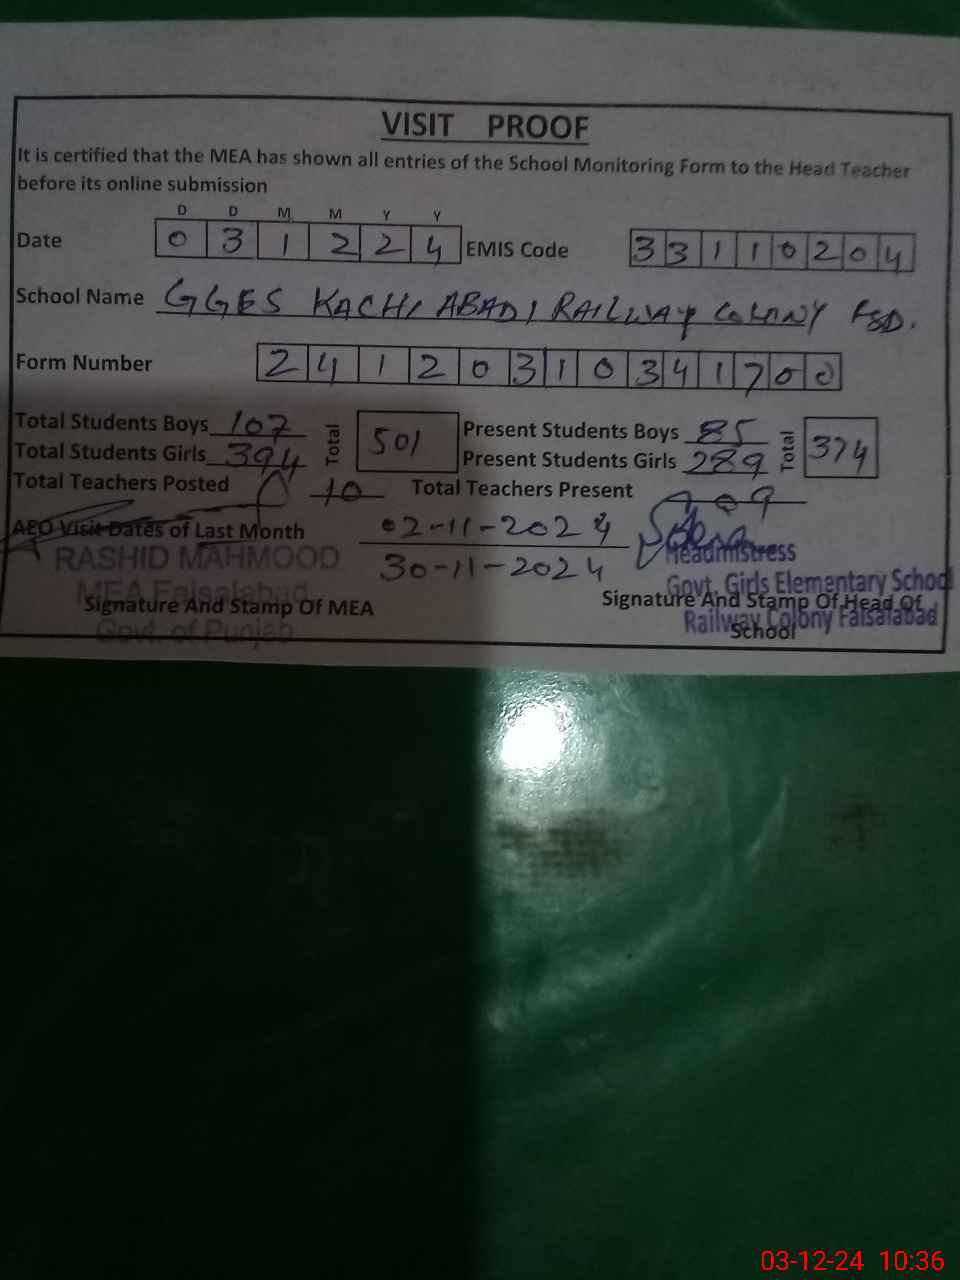 VISIT PROOF
It is certified that the MEA has shown all entries of the School Monitoring Form to the Head Teacher
before its online submission
D D M M Y Y
Date 0 3 1 2 2 4 EMIS Code 3 3 1 1 0 2 0 4
School Name GGES KACHI ABADI RAILWAY COLONY FSD.
Form Number 2 4 1 2 0 3 1 0 3 4 1 7 0 0
Total Students Boys 107 Total 501 Present Students Boys 85 Total 374
Total Students Girls 394 Present Students Girls 289
Total Teachers Posted 10 Total Teachers Present 09
AEO Visit Dates of Last Month 02-11-2024
30-11-2024
RASHID MAHMOOD
MEA Faisalabad
Govt. of Punjab
Signature And Stamp Of MEA
Headmistress
Govt. Girls Elementary School
Railway Colony Faisalabad
Signature And Stamp Of Head Of
School
03-12-24 10:36